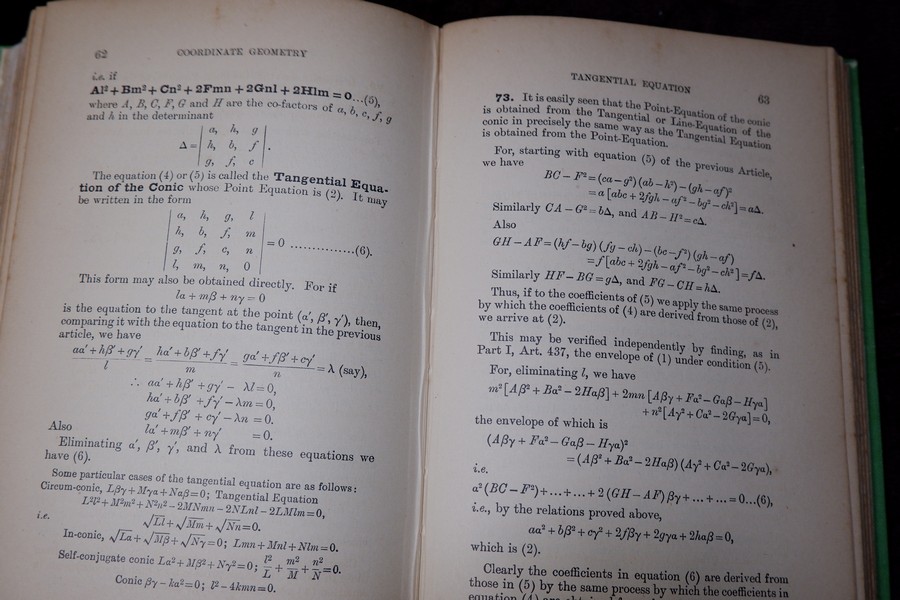 62 COORDINATE GEOMETRY
i.e. if
Al² + Bm² + Cn² + 2Fmn + 2Gnl + 2Hlm = 0...(5),
where A, B, C, F, G and H are the co-factors of a, b, c, f, g
and h in the determinant
| a, h, g |
Δ = | h, b, f | .
| g, f, c |
The equation (4) or (5) is called the Tangential Equa-
tion of the Conic whose Point Equation is (2). It may
be written in the form
| a, h, g, l |
| h, b, f, m |
| g, f, c, n | = 0 ...............(6).
| l, m, n, 0 |
This form may also be obtained directly. For if
la + mβ + nγ = 0
is the equation to the tangent at the point (α′, β′, γ′), then,
comparing it with the equation to the tangent in the previous
article, we have
(aα′ + hβ′ + gγ′)/l = (hα′ + bβ′ + fγ′)/m = (gα′ + fβ′ + cγ′)/n = λ (say),
∴ aα′ + hβ′ + gγ′ − λl = 0,
hα′ + bβ′ + fγ′ − λm = 0,
gα′ + fβ′ + cγ′ − λn = 0.
Also lα′ + mβ′ + nγ′ = 0.
Eliminating α′, β′, γ′, and λ from these equations we
have (6).
Some particular cases of the tangential equation are as follows:
Circum-conic, Lβγ + Mγα + Nαβ = 0; Tangential Equation
L²l² + M²m² + N²n² − 2MNmn − 2NLnl − 2LMlm = 0,
i.e. √Ll + √Mm + √Nn = 0.
In-conic, √Lα + √Mβ + √Nγ = 0; Lmn + Mnl + Nlm = 0.
Self-conjugate conic Lα² + Mβ² + Nγ² = 0; l²/L + m²/M + n²/N = 0.
Conic βγ − kα² = 0; l² − 4kmn = 0.
TANGENTIAL EQUATION 63
73. It is easily seen that the Point-Equation of the conic
is obtained from the Tangential or Line-Equation of the
conic in precisely the same way as the Tangential Equation
is obtained from the Point-Equation.
For, starting with equation (5) of the previous Article,
we have
BC − F² = (ca − g²)(ab − h²) − (gh − af)²
= a [abc + 2fgh − af² − bg² − ch²] = aΔ.
Similarly CA − G² = bΔ, and AB − H² = cΔ.
Also
GH − AF = (hf − bg)(fg − ch) − (bc − f²)(gh − af)
= f [abc + 2fgh − af² − bg² − ch²] = fΔ.
Similarly HF − BG = gΔ, and FG − CH = hΔ.
Thus, if to the coefficients of (5) we apply the same process
by which the coefficients of (4) are derived from those of (2),
we arrive at (2).
This may be verified independently by finding, as in
Part I, Art. 437, the envelope of (1) under condition (5).
For, eliminating l, we have
m² [Aβ² + Bα² − 2Hαβ] + 2mn [Aβγ + Fα² − Gαβ − Hγα]
+ n² [Aγ² + Cα² − 2Gγα] = 0,
the envelope of which is
(Aβγ + Fα² − Gαβ − Hγα)²
= (Aβ² + Bα² − 2Hαβ) (Aγ² + Cα² − 2Gγα),
i.e.
α² (BC − F²) + ... + ... + 2 (GH − AF) βγ + ... + ... = 0...(6),
i.e., by the relations proved above,
aα² + bβ² + cγ² + 2fβγ + 2gγα + 2hαβ = 0,
which is (2).
Clearly the coefficients in equation (6) are derived from
those in (5) by the same process by which the coefficients in
equation (4) are